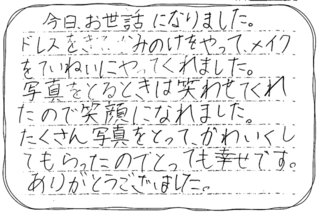 今日、お世話になりました。
ドレスをきて、かみのけをやって、メイク
をていねいにやってくれました。
写真をとるときは笑わせてくれ
たので笑顔になれました。
たくさん写真をとって、かわいくし
てもらったのでとっても幸せです。
ありがとうございました。